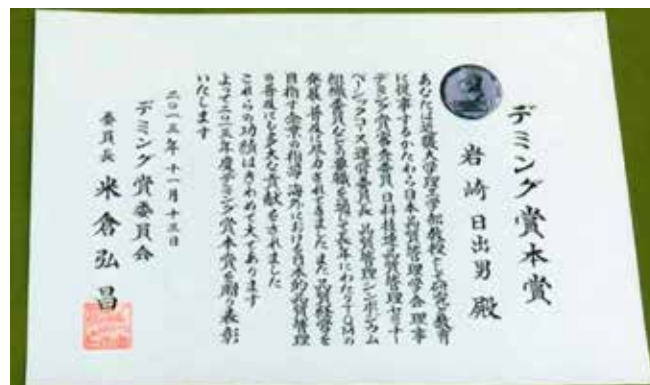 デミング賞本賞
岩崎日出男殿
あなたは近畿大学理工学部教授として研究と教育
に従事するかたわら日本品質管理学会理事
デミング賞審査委員日科技連品質管理セミナー
ベーシックコース運営委員長品質管理シンポジウム
組織委員などの要職を通して長年にわたりTQMの
発展、普及に尽力されてきました また品質経営を
目指す企業の指導、海外における日本的品質管理
の普及にも多大な貢献をされました
これらの功績はきわめて大であります
よって二〇一三年度デミング賞本賞を贈り表彰
いたします
二〇一三年十一月十三日
デミング賞委員会
委員長 米倉弘昌